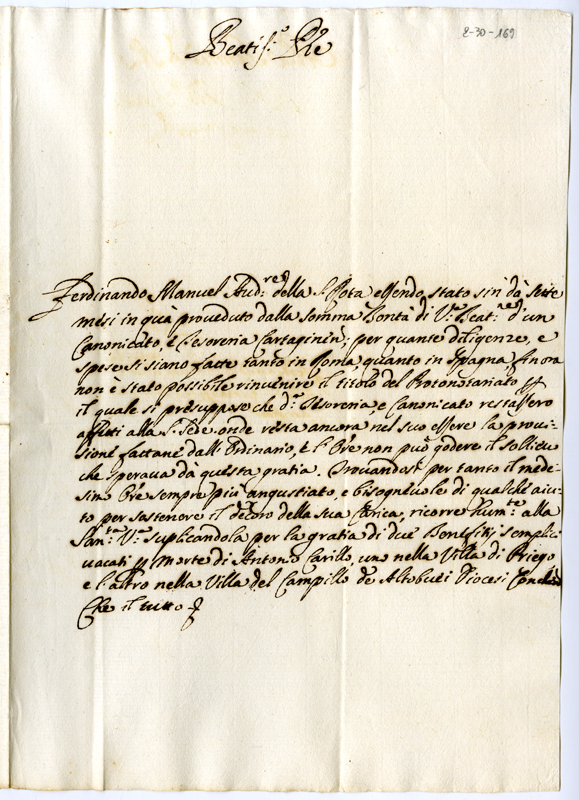 2-30-169
Beatis.º Pre
Ferdinando Manuel Aud.re della S. Rota essendo stato sin da sette
mesi in quà proveduto dalla somma bontà di V.ra Beat.ne d'un
Canonicato, è Tesoreria Cartaginen; per quante diligenze, e
spese si siano facte tanto in Roma, quanto in Spagna finora
non è stato possibile rinuenire il titolo del Protonotariato
il quale si presuppose che d.a Tesoreria, e Canonicato restassero
affetti alla S. Sede. onde resta ancora nel suo essere la proui-
sione fattane dall' Ordinario, è l'Ore non può godere il sollieuo
che sperava da questa gratia. Trouandosi per tanto il mede-
simo Ore sempre più angustiato, e bisogneuole di qualche aiu-
to per sostenere il decoro della sua Carica, ricorre hum.te alla
San.tà V.ra suplicandola per la gratia di due Beneficij semplici
uacati per morte di Antonio Carillo, uno nella Villa di Priego
e l'altro nella Villa del Campillo de Altobuei Diocesi
Che il tutto